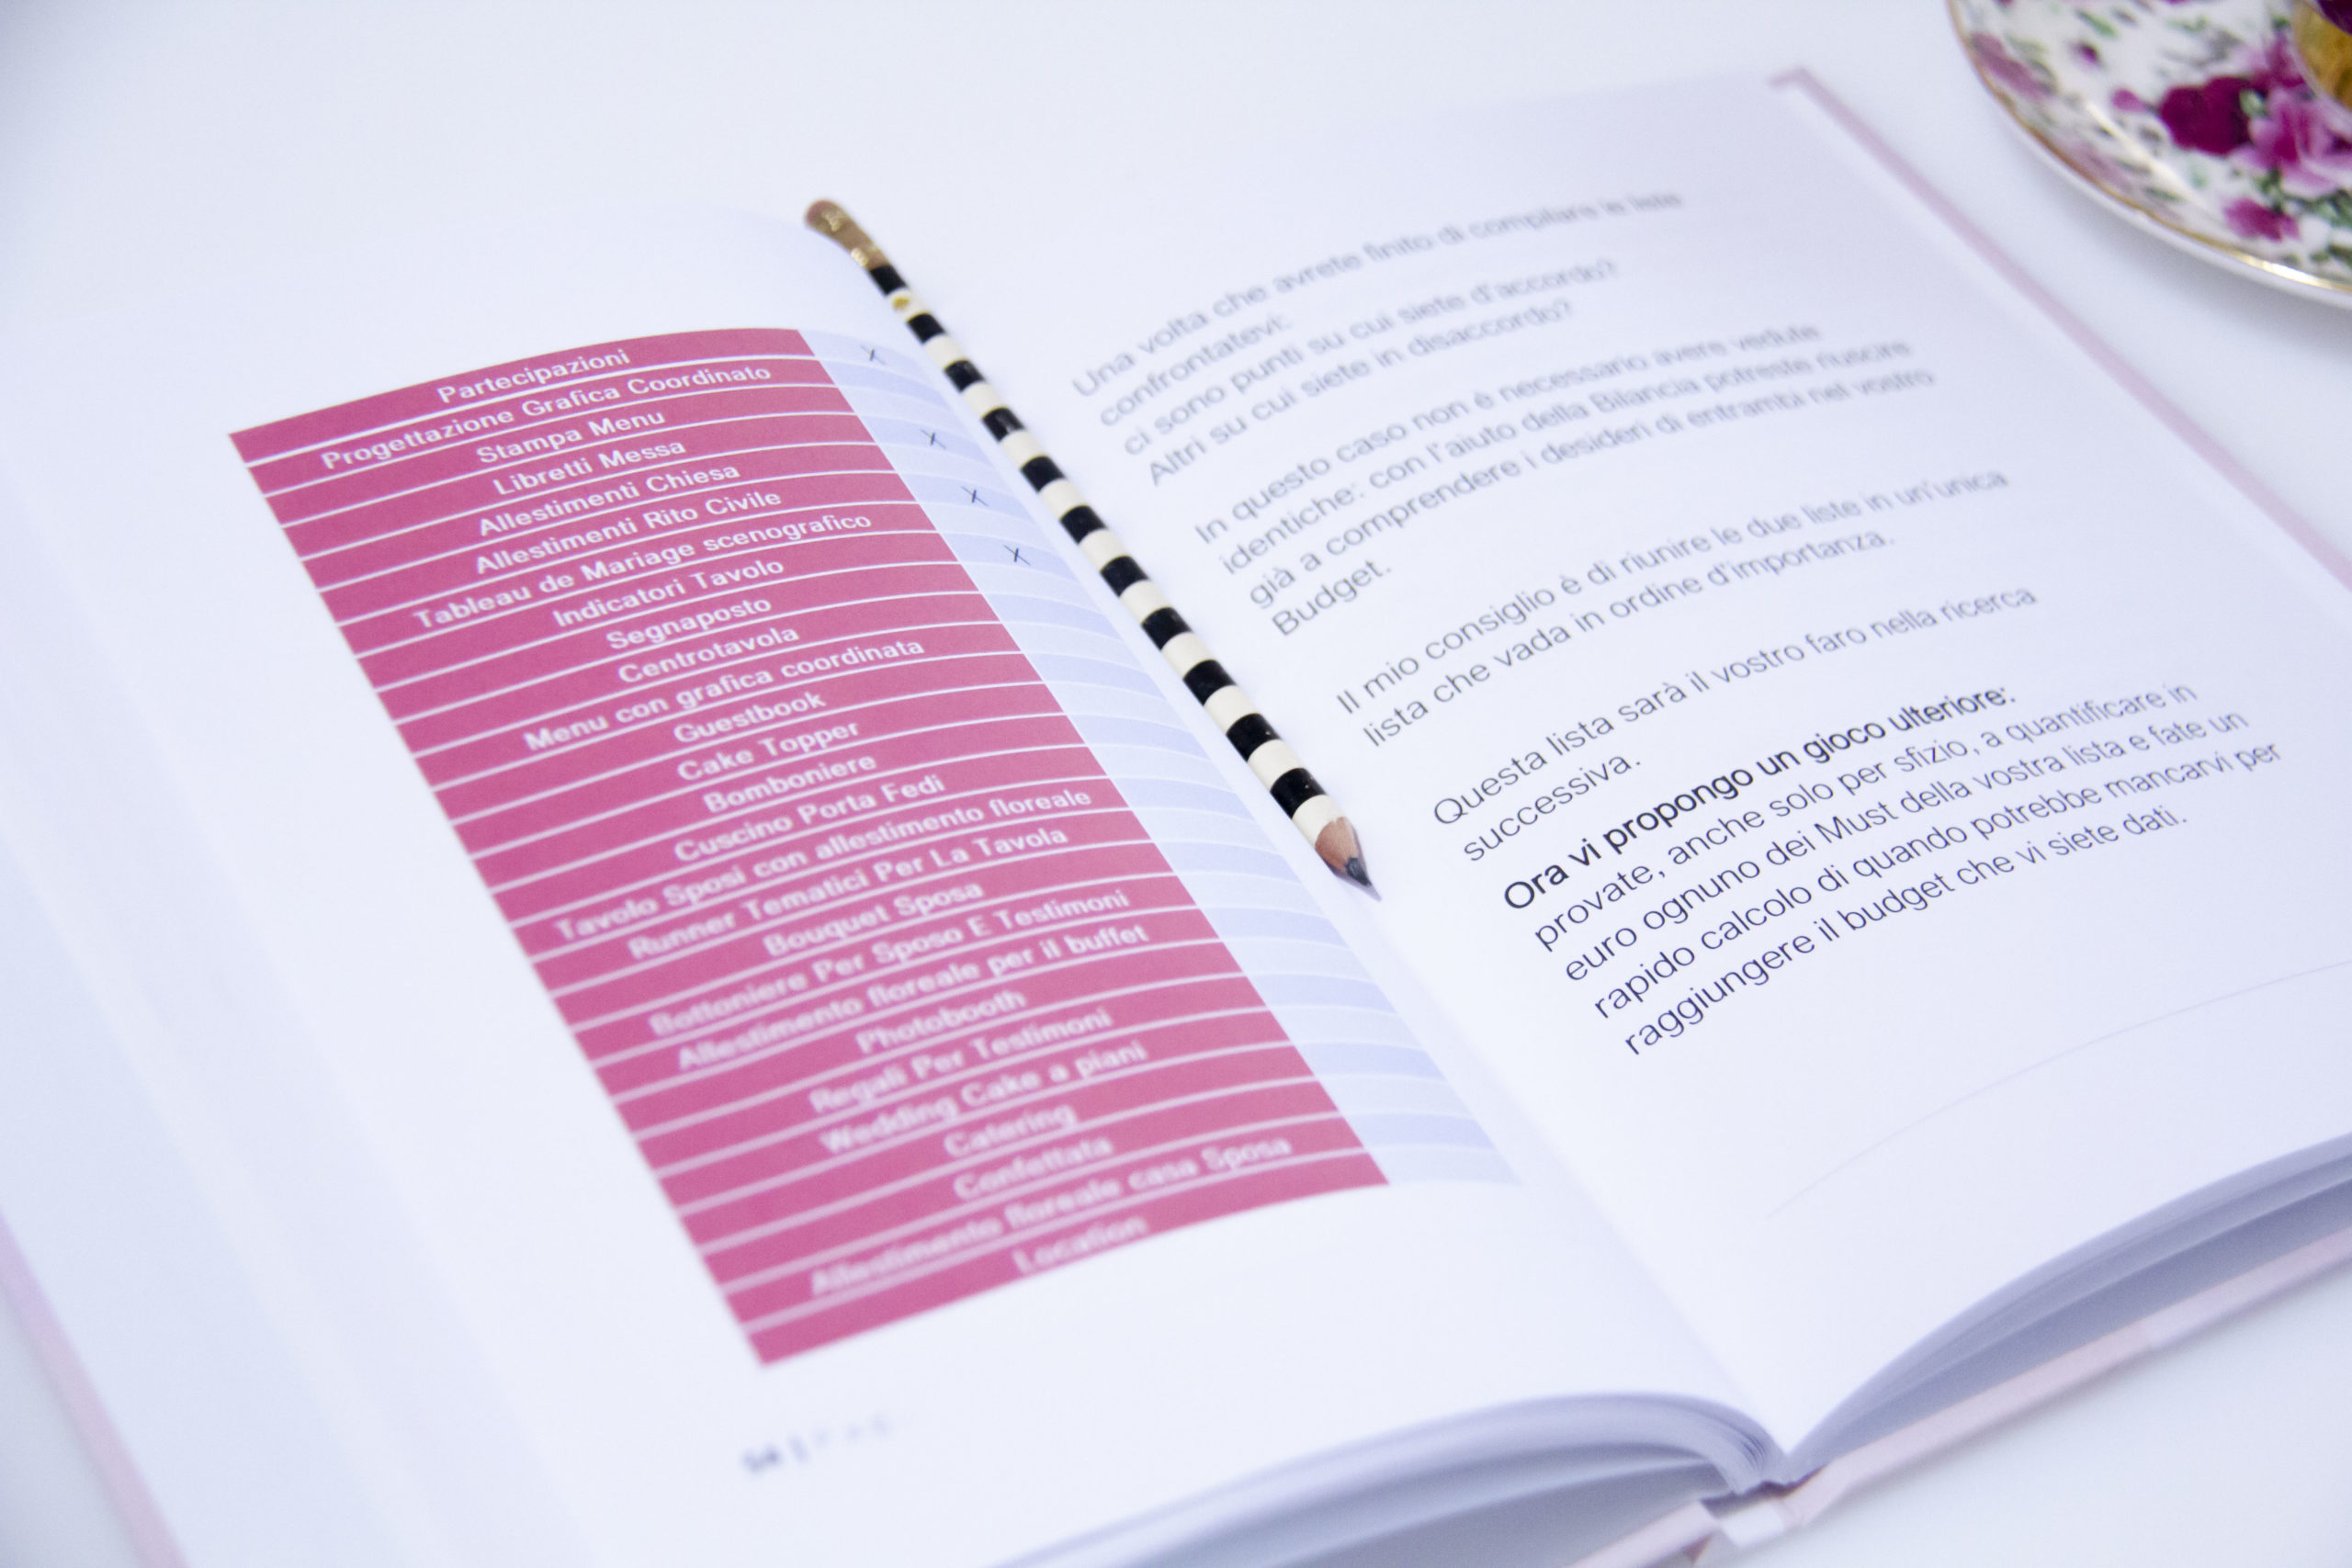 Partecipazioni
Progettazione Grafica Coordinato
Stampa Menu
Libretti Messa
Allestimenti Chiesa
Allestimenti Rito Civile
Tableau de Mariage scenografico
Indicatori Tavolo
Segnaposto
Centrotavola
Menu con grafica coordinata
Guestbook
Cake Topper
Bomboniere
Cuscino Porta Fedi
Tavolo Sposi con allestimento floreale
Runner Tematici Per La Tavola
Bouquet Sposa
Bottoniere Per Sposo E Testimoni
Allestimento floreale per il buffet
Photobooth
Regali Per Testimoni
Wedding Cake a piani
Catering
Confettata
Allestimento floreale casa Sposa
Location
X
X
X
X
Una volta che avrete finito di compilare le liste
confrontatevi:
ci sono punti su cui siete d'accordo?
Altri su cui siete in disaccordo?
In questo caso non è necessario avere vedute
identiche: con l'aiuto della Bilancia potreste riuscire
già a comprendere i desideri di entrambi nel vostro
Budget.
Il mio consiglio è di riunire le due liste in un'unica
lista che vada in ordine d'importanza.
Questa lista sarà il vostro faro nella ricerca
successiva.
Ora vi propongo un gioco ulteriore:
provate, anche solo per sfizio, a quantificare in
euro ognuno dei Must della vostra lista e fate un
rapido calcolo di quando potrebbe mancarvi per
raggiungere il budget che vi siete dati.